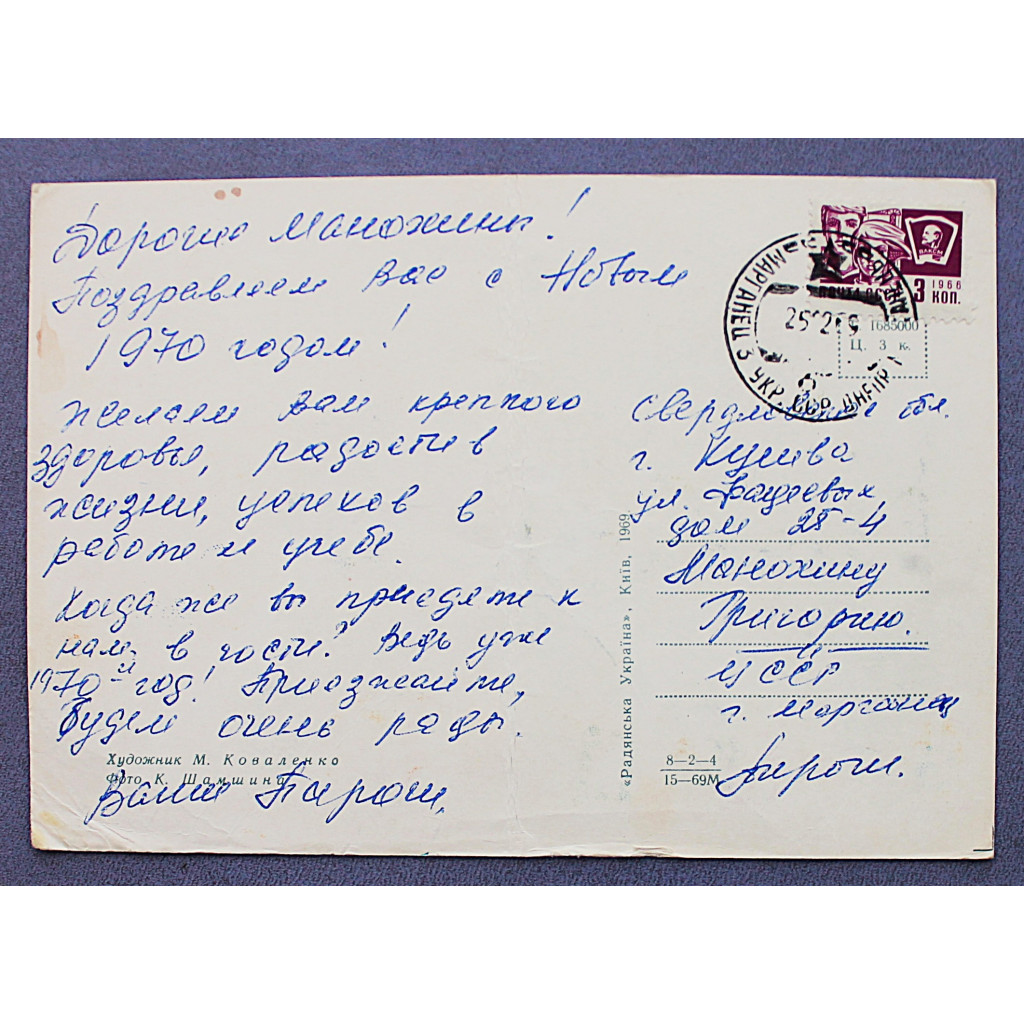 Дорогие Манохины!
Поздравляем Вас с Новым
1970 годом!
Желаем Вам крепкого
здоровья, радости в
жизни, успехов в
работе и учебе.
Когда же вы приедете к
нам в гости? Ведь уже
1970-й год! Приезжайте,
будем очень рады.
Художник М. Коваленко
Фото К. Шамшина
Ваши
«Радянська Україна», Київ, 1969.
8—2—4
15—69М
ВЛКСМ
ПОЧТА СССР
3 КОП.
1966
МАРГАНЕЦ 3 УКР. ССР
1685000
Ц. 3 к.
Свердловская обл.
г. Кушва
ул. Фадеевых,
дом 25-4
Манохину
Григорию.
УССР
г. Марганец